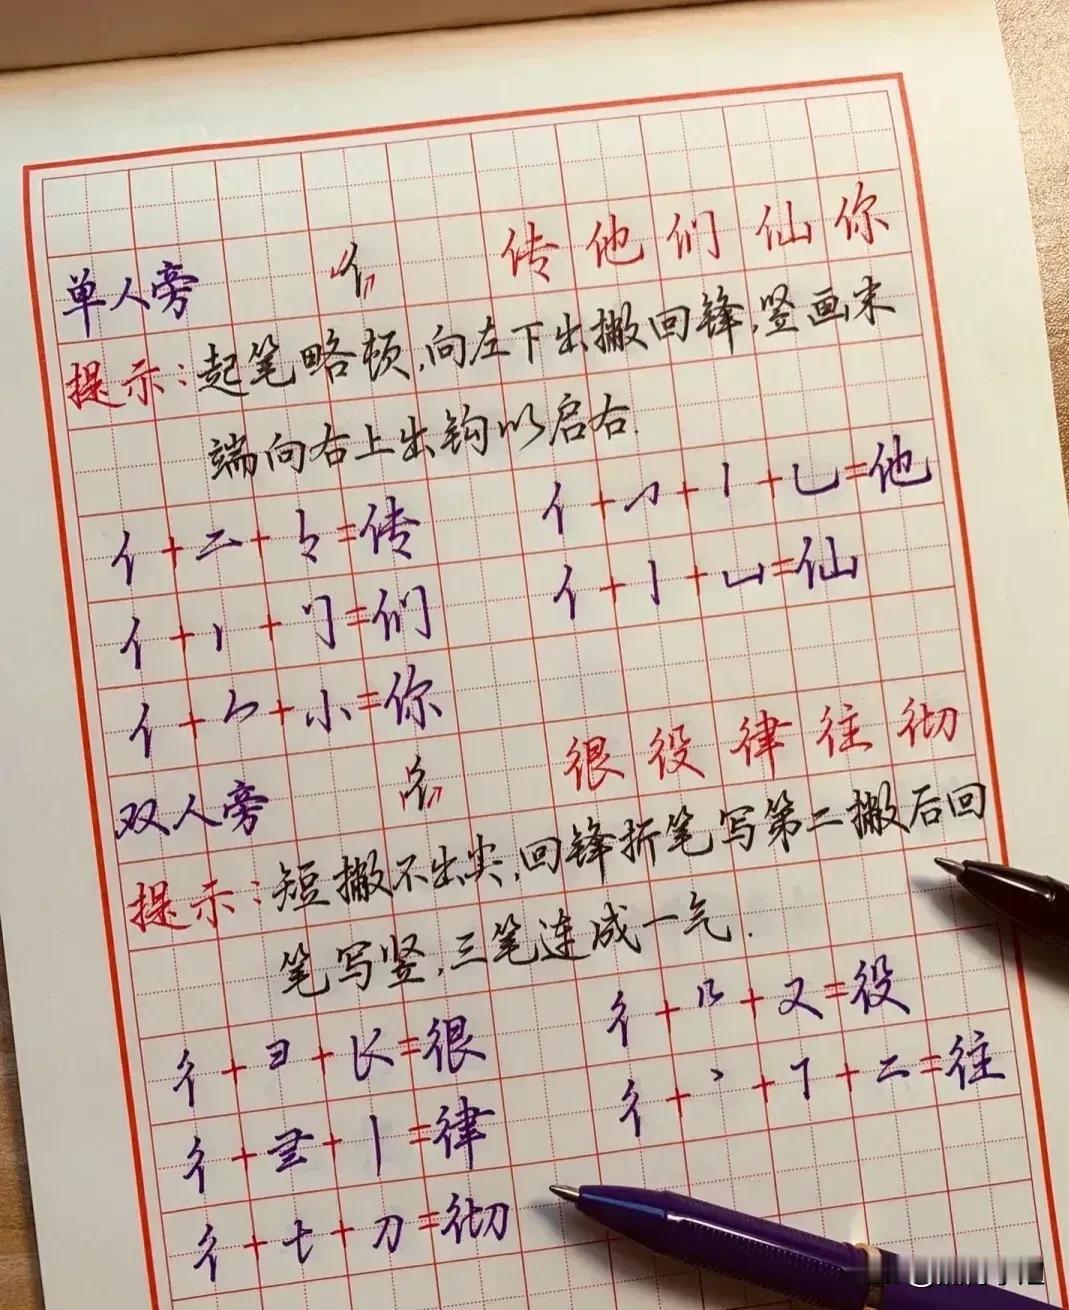 单人旁 亻 传他们仙你
提示：起笔略顿，向左下出撇回锋，竖画末
端向右上出钩以启右.
亻+二+ =传 亻+㇆+丨+乚=他
亻+丶丨+𠃌=们 亻+丨+凵=仙
亻+𠂊+小=你
双人旁 彳 很役律往彻
提示：短撇不出尖，回锋折笔写第二撇后回
笔写竖，三笔连成一气.
彳+彐+ =很 彳+几+又=役
彳+ +丨=律 彳+丶+㇕+二=往
彳+七+刀=彻